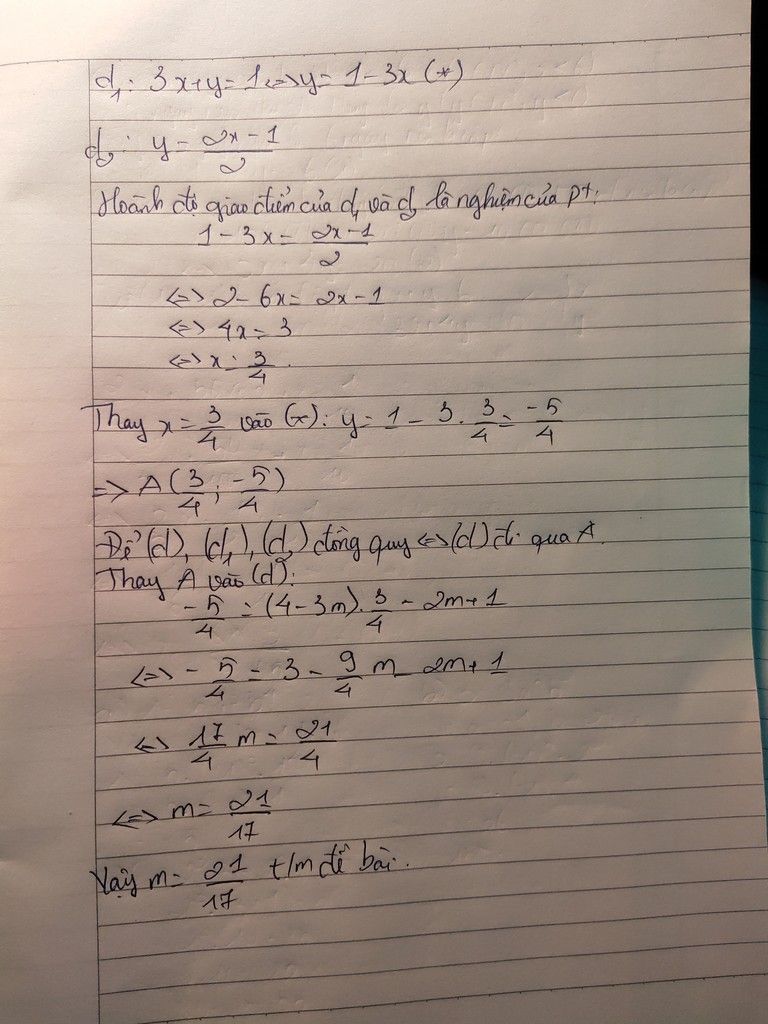 d₁: 3x+y=1 <=> y= 1-3x (*)
d₂: y= \frac{2x-1}{2}
Hoành độ giao điểm của d₁ và d₂ là nghiệm của pt:
1-3x= \frac{2x-1}{2}
<=> 2-6x= 2x-1
<=> 4x=3
<=> x= \frac{3}{4}.
Thay x= \frac{3}{4} vào (*): y= 1-3.\frac{3}{4}= \frac{-5}{4}
=> A(\frac{3}{4}; \frac{-5}{4})
Để (d), (d₁), (d₂) đồng quy <=> (d) đi qua A.
Thay A vào (d):
\frac{-5}{4} = (4-3m).\frac{3}{4} - 2m+1
<=> -\frac{5}{4} = 3-\frac{9}{4}m-2m+1
<=> \frac{17}{4}m= \frac{21}{4}
<=> m= \frac{21}{17}
Vậy m= \frac{21}{17} t/m đề bài.